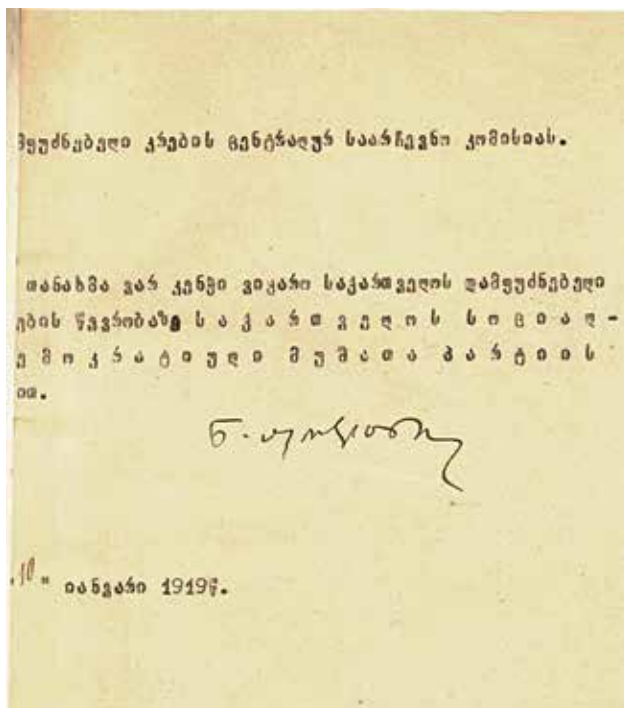 მფუძნებელი კრების ცენტრალურ საარჩევნო კომისიას.
თანახმა ვარ კენჭი ვიყარო საქართველოს დამფუძნებელი
ების წევრობაზე ს ა ქ ა რ თ ვ ე ლ ო ს ს ო ც ი ა ლ -
ე მ ო კ რ ა ტ ი უ ლ ი მ უ შ ა თ ა პ ა რ ტ ი ი ს
ით.
ნ.
"10" იანვარი 1919წ.